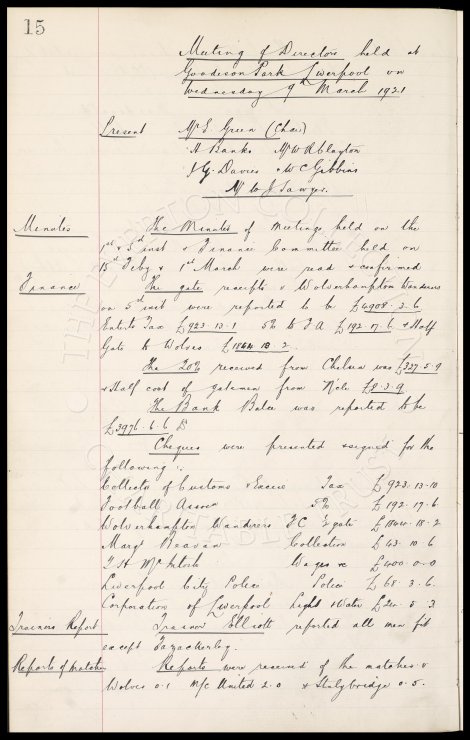 15
Meeting of Directors held at
Goodison Park Liverpool on
Wednesday 9th March 1921
Present Mr E. Green (Chair)
A Banks Mr W R Clayton
J G. Davies & W C Gibbins
Mr W J Sawyer.
Minutes The Minutes of meetings held on the
1st & 5th inst & Finance Committee held on
15th Feby & 1st March were read & confirmed
Finance The gate receipts v Wolverhampton Wanderers
on 5th inst were reported to be £4908.3.6
Ents Tax £923.13.1 5% to F A £192.17.6 & Half
Gate to Wolves £1864.18.2.
The 20% received from Chelsea was £327.5.9
& Half cost of gatemen from £8.3.9
The Bank Balce was reported to be
£3976.6.6
Cheques were presented & signed for the
following :-
Collector of Customs & Excise Tax £923.13.10
Football Assocn 5% £192.17.6.
Wolverhampton Wanderers F C ½ gate £1864.18.2
Margt Beavan Collection £43.10.6
T H McIntosh Wages &c £400.0.0
Liverpool City Police Police £68.3.6.
Corporation of Liverpool Light & Water £20.5.3
Trainers Report Trainer Elliott reported all men fit
except Fazackerley.
Reports of Matches Reports were received of the matches v
Wolves 0.1 M/c United 2.0 & Stalybridge 0.5.